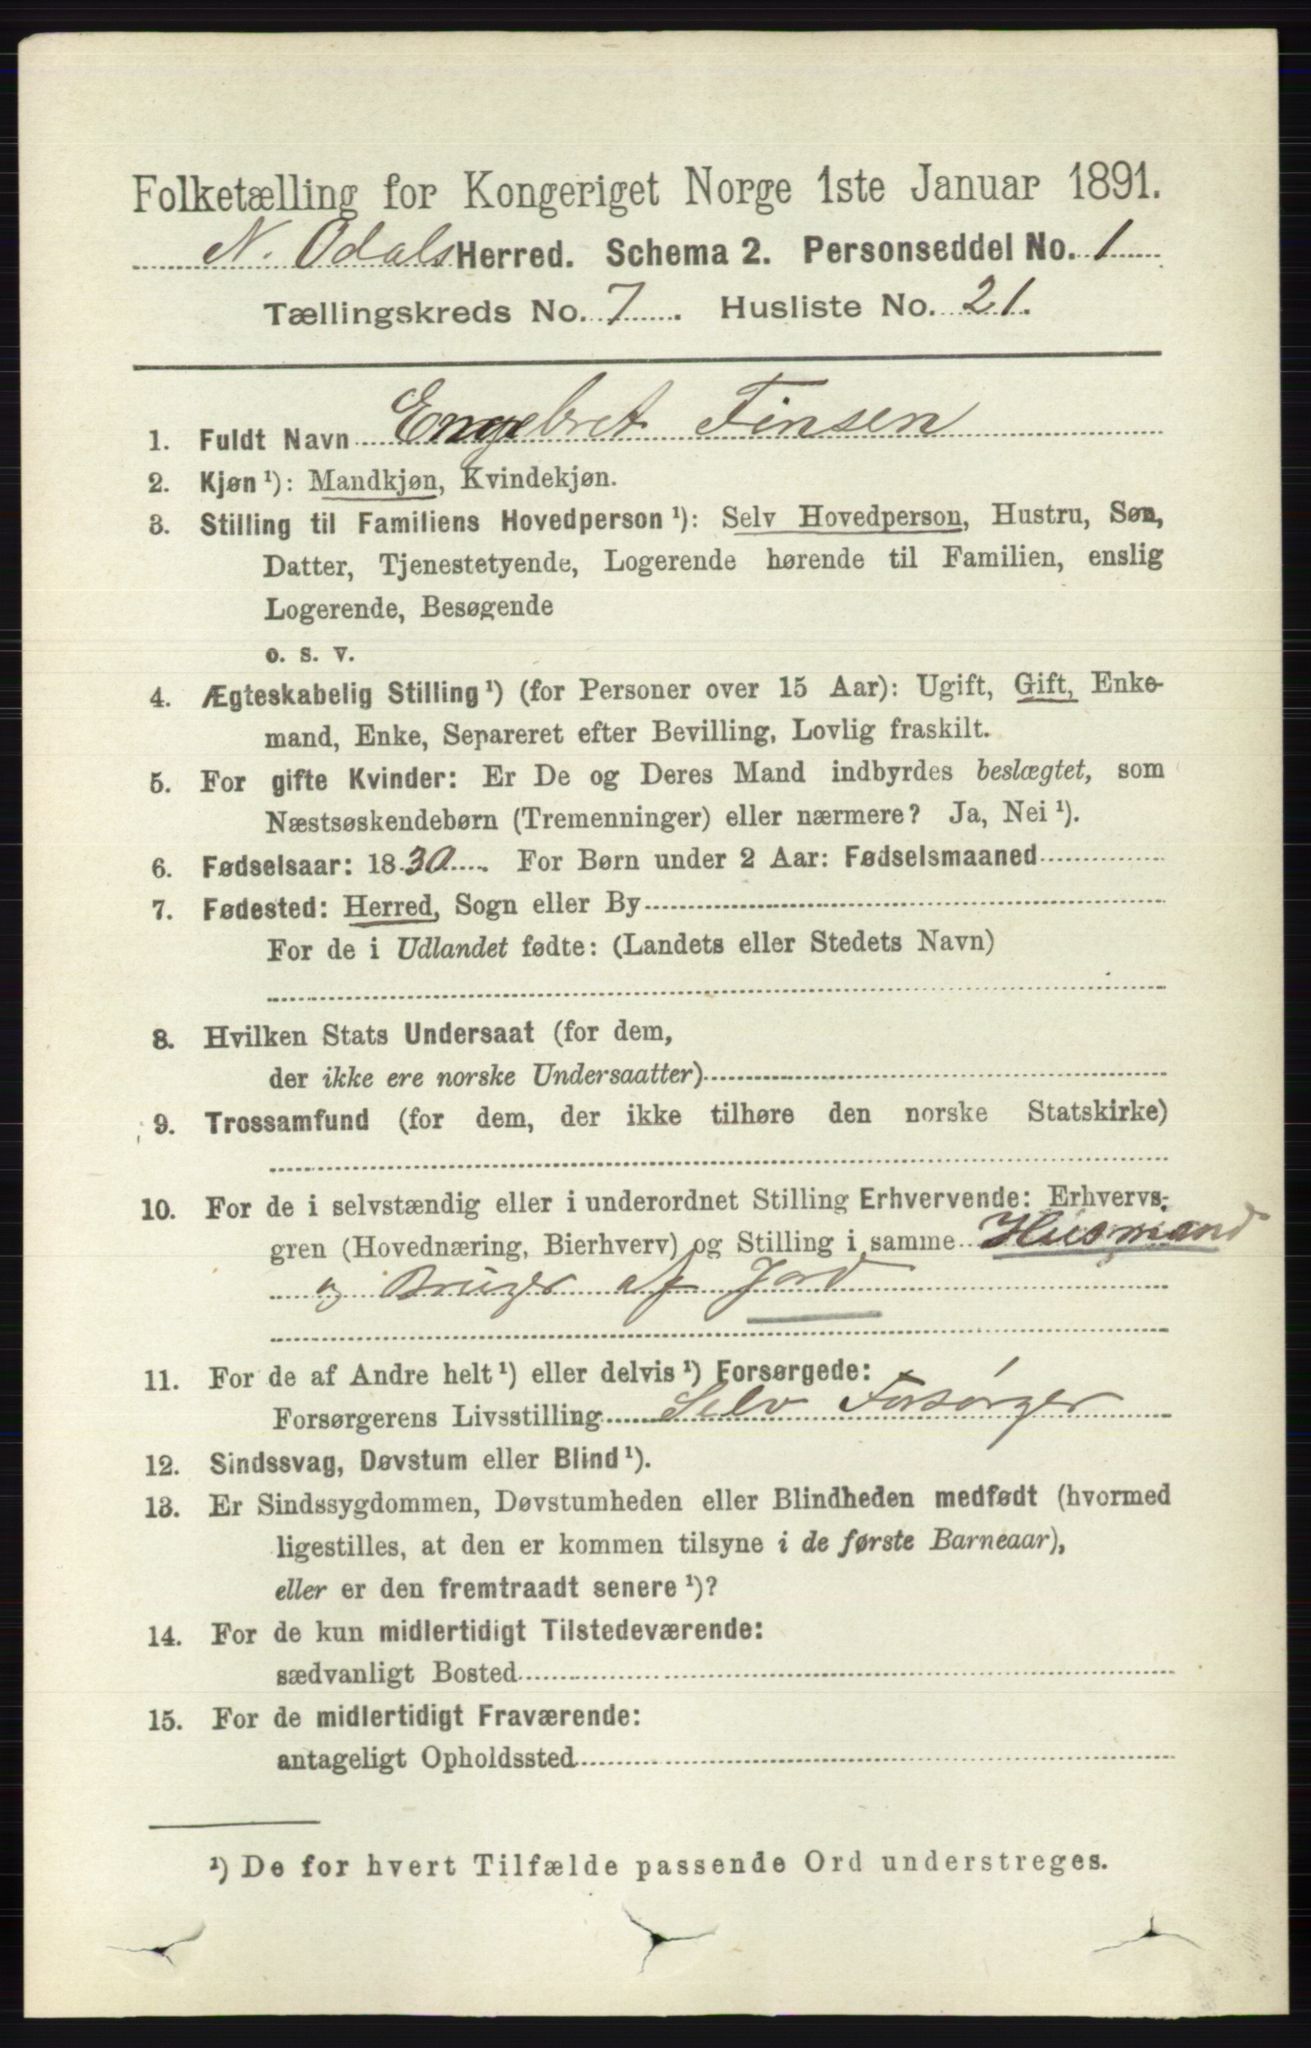 Folketælling for Kongeriget Norge 1ste Januar 1891.
N. Odals Herred. Schema 2. Personseddel No. 1
Tællingskreds No. 7. Husliste No. 21.
1. Fuldt Navn Engebret Finsen
2. Kjøn ¹): Mandkjøn, Kvindekjøn.
3. Stilling til Familiens Hovedperson ¹): Selv Hovedperson, Hustru, Søn,
Datter, Tjenestetyende, Logerende hørende til Familien, enslig
Logerende, Besøgende
o. s. v.
4. Ægteskabelig Stilling ¹) (for Personer over 15 Aar): Ugift, Gift, Enke-
mand, Enke, Separeret efter Bevilling, Lovlig fraskilt.
5. For gifte Kvinder: Er De og Deres Mand indbyrdes beslægtet, som
Næstsøskendebørn (Tremenninger) eller nærmere? Ja, Nei ¹).
6. Fødselsaar: 1830. For Børn under 2 Aar: Fødselsmaaned
7. Fødested: Herred, Sogn eller By
For de i Udlandet fødte: (Landets eller Stedets Navn)
8. Hvilken Stats Undersaat (for dem,
der ikke ere norske Undersaatter)
9. Trossamfund (for dem, der ikke tilhøre den norske Statskirke)
10. For de i selvstændig eller i underordnet Stilling Erhvervende: Erhvervs-
gren (Hovednæring, Bierhverv) og Stilling i samme Husmand
og Bruger af Jord
11. For de af Andre helt ¹) eller delvis ¹) Forsørgede:
Forsørgerens Livsstilling Selv Forsørger
12. Sindssvag, Døvstum eller Blind ¹).
13. Er Sindssygdommen, Døvstumheden eller Blindheden medfødt (hvormed
ligestilles, at den er kommen tilsyne i de første Barneaar),
eller er den fremtraadt senere ¹)?
14. For de kun midlertidigt Tilstedeværende:
sædvanligt Bosted
15. For de midlertidigt Fraværende:
antageligt Opholdssted
¹) De for hvert Tilfælde passende Ord understreges.